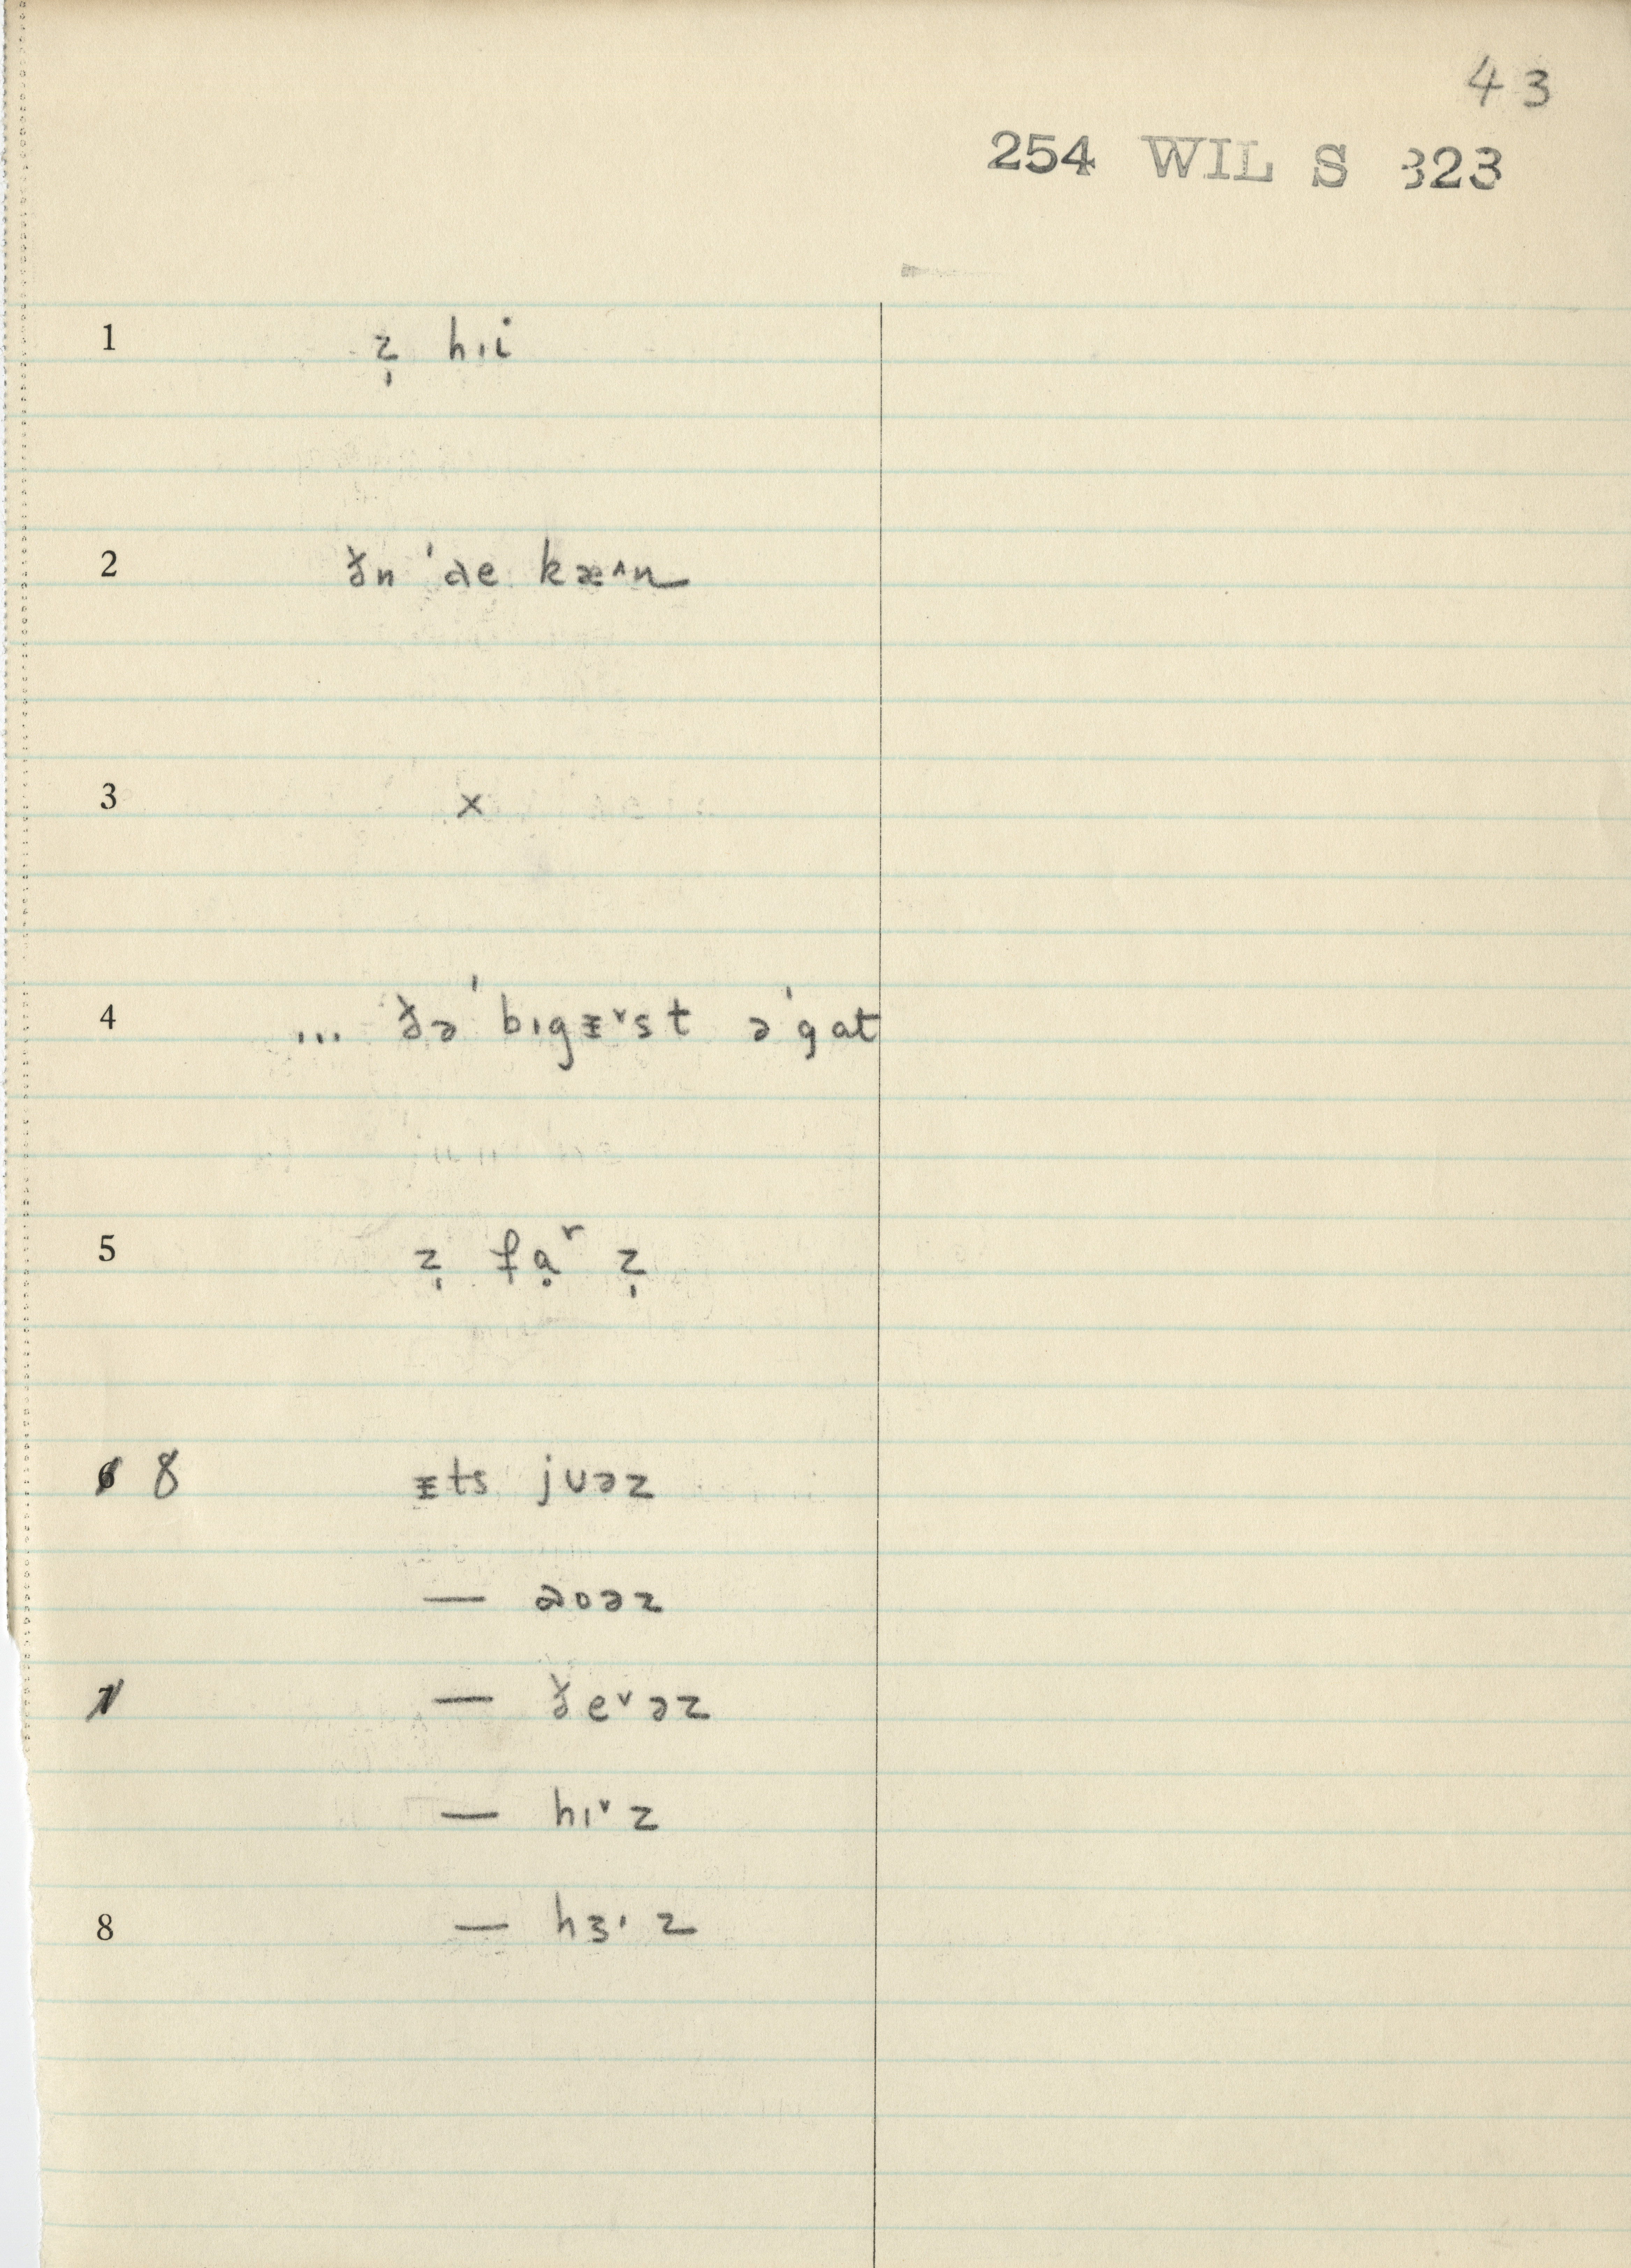 43
254 WIL S 323
1 z̩ hɪi
2 ðn ˈae kæ˄n
3 ×
4 ... ðə ˈbɪgᵻ˅st ə ˈgat
5 z̩ fạʳ z̩
6 8 ᵻts jʊəz
— aʊəz
7 — ðe˅əz
— hɪ˅z
8 — hɜˑz